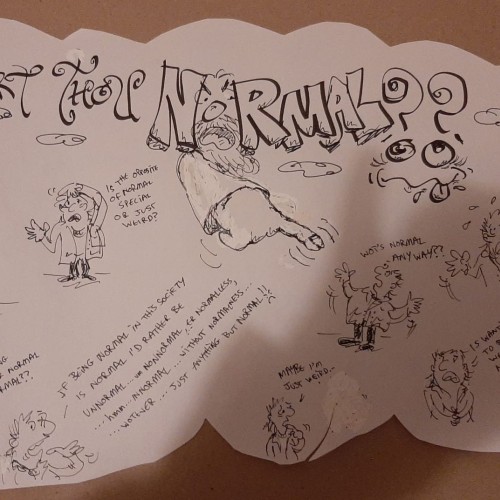 RT THOU NORMAL??
IS THE OPPOSITE
OF NORMAL
SPECIAL
OR JUST
WEIRD?
WOT'S NORMAL
ANY WAY??
NORMAL
MAL??
IF BEING NORMAL IN THIS SOCIETY
IS NORMAL I'D RATHER BE
UNNORMAL... NONNORMAL.. ER NORMALLESS,
.... hmm.. ANORMAL.... WITHOUT NORMALNESS...
.... WOTEVER.... JUST ANYTHING BUT NORMAL!!
MAYBE I'M
JUST WEIRD...
IS WA
TO B